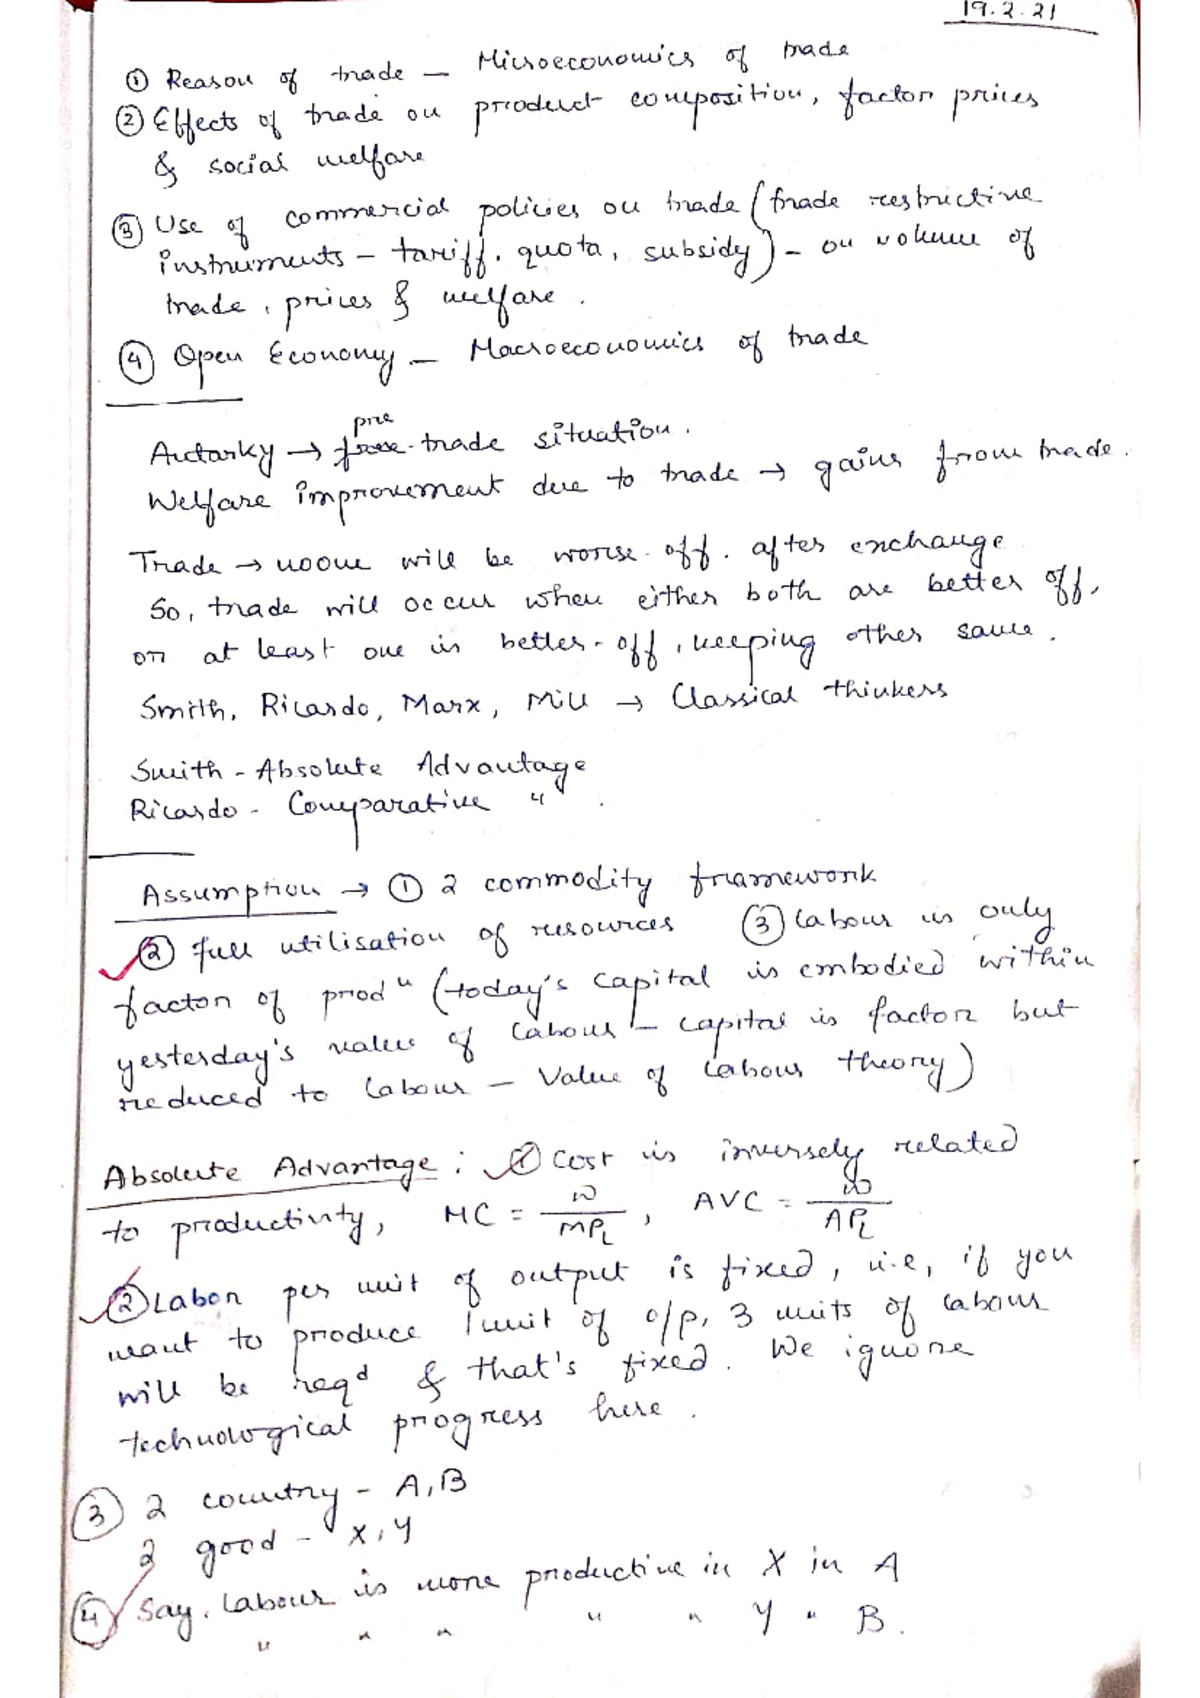 19.2.21
① Reason of trade — Microeconomics of trade
② Effects of trade on product composition, factor prices
& social welfare
③ Use of commercial policies on trade (trade restrictive
instruments - tariff, quota, subsidy) - on volume of
trade, prices & welfare.
④ Open Economy — Macroeconomics of trade
pre
Autarky → trade situation.
Welfare improvement due to trade → gains from trade.
Trade → noone will be worse-off. after exchange
So, trade will occur when either both are better off,
or at least one is better-off, keeping other same.
Smith, Ricardo, Marx, Mill → Classical thinkers
Smith - Absolute Advantage
Ricardo - Comparative "
Assumption → ① 2 commodity framework
② full utilisation of resources ③ labour is only
factor of prodⁿ (today's capital is embodied within
yesterday's value of labour - capital is factor but
reduced to labour - Value of labour theory)
Absolute Advantage : ① Cost is inversely related
to productivity, MC = w/MPL, AVC = w/APL
② Labor per unit of output is fixed, i.e, if you
want to produce 1 unit of o/p, 3 units of labour
will be reqd & that's fixed. We ignore
technological progress here.
③ 2 country - A, B
2 good - X, Y
④ Say, labour is more productive in X in A
" " " " " Y " B.